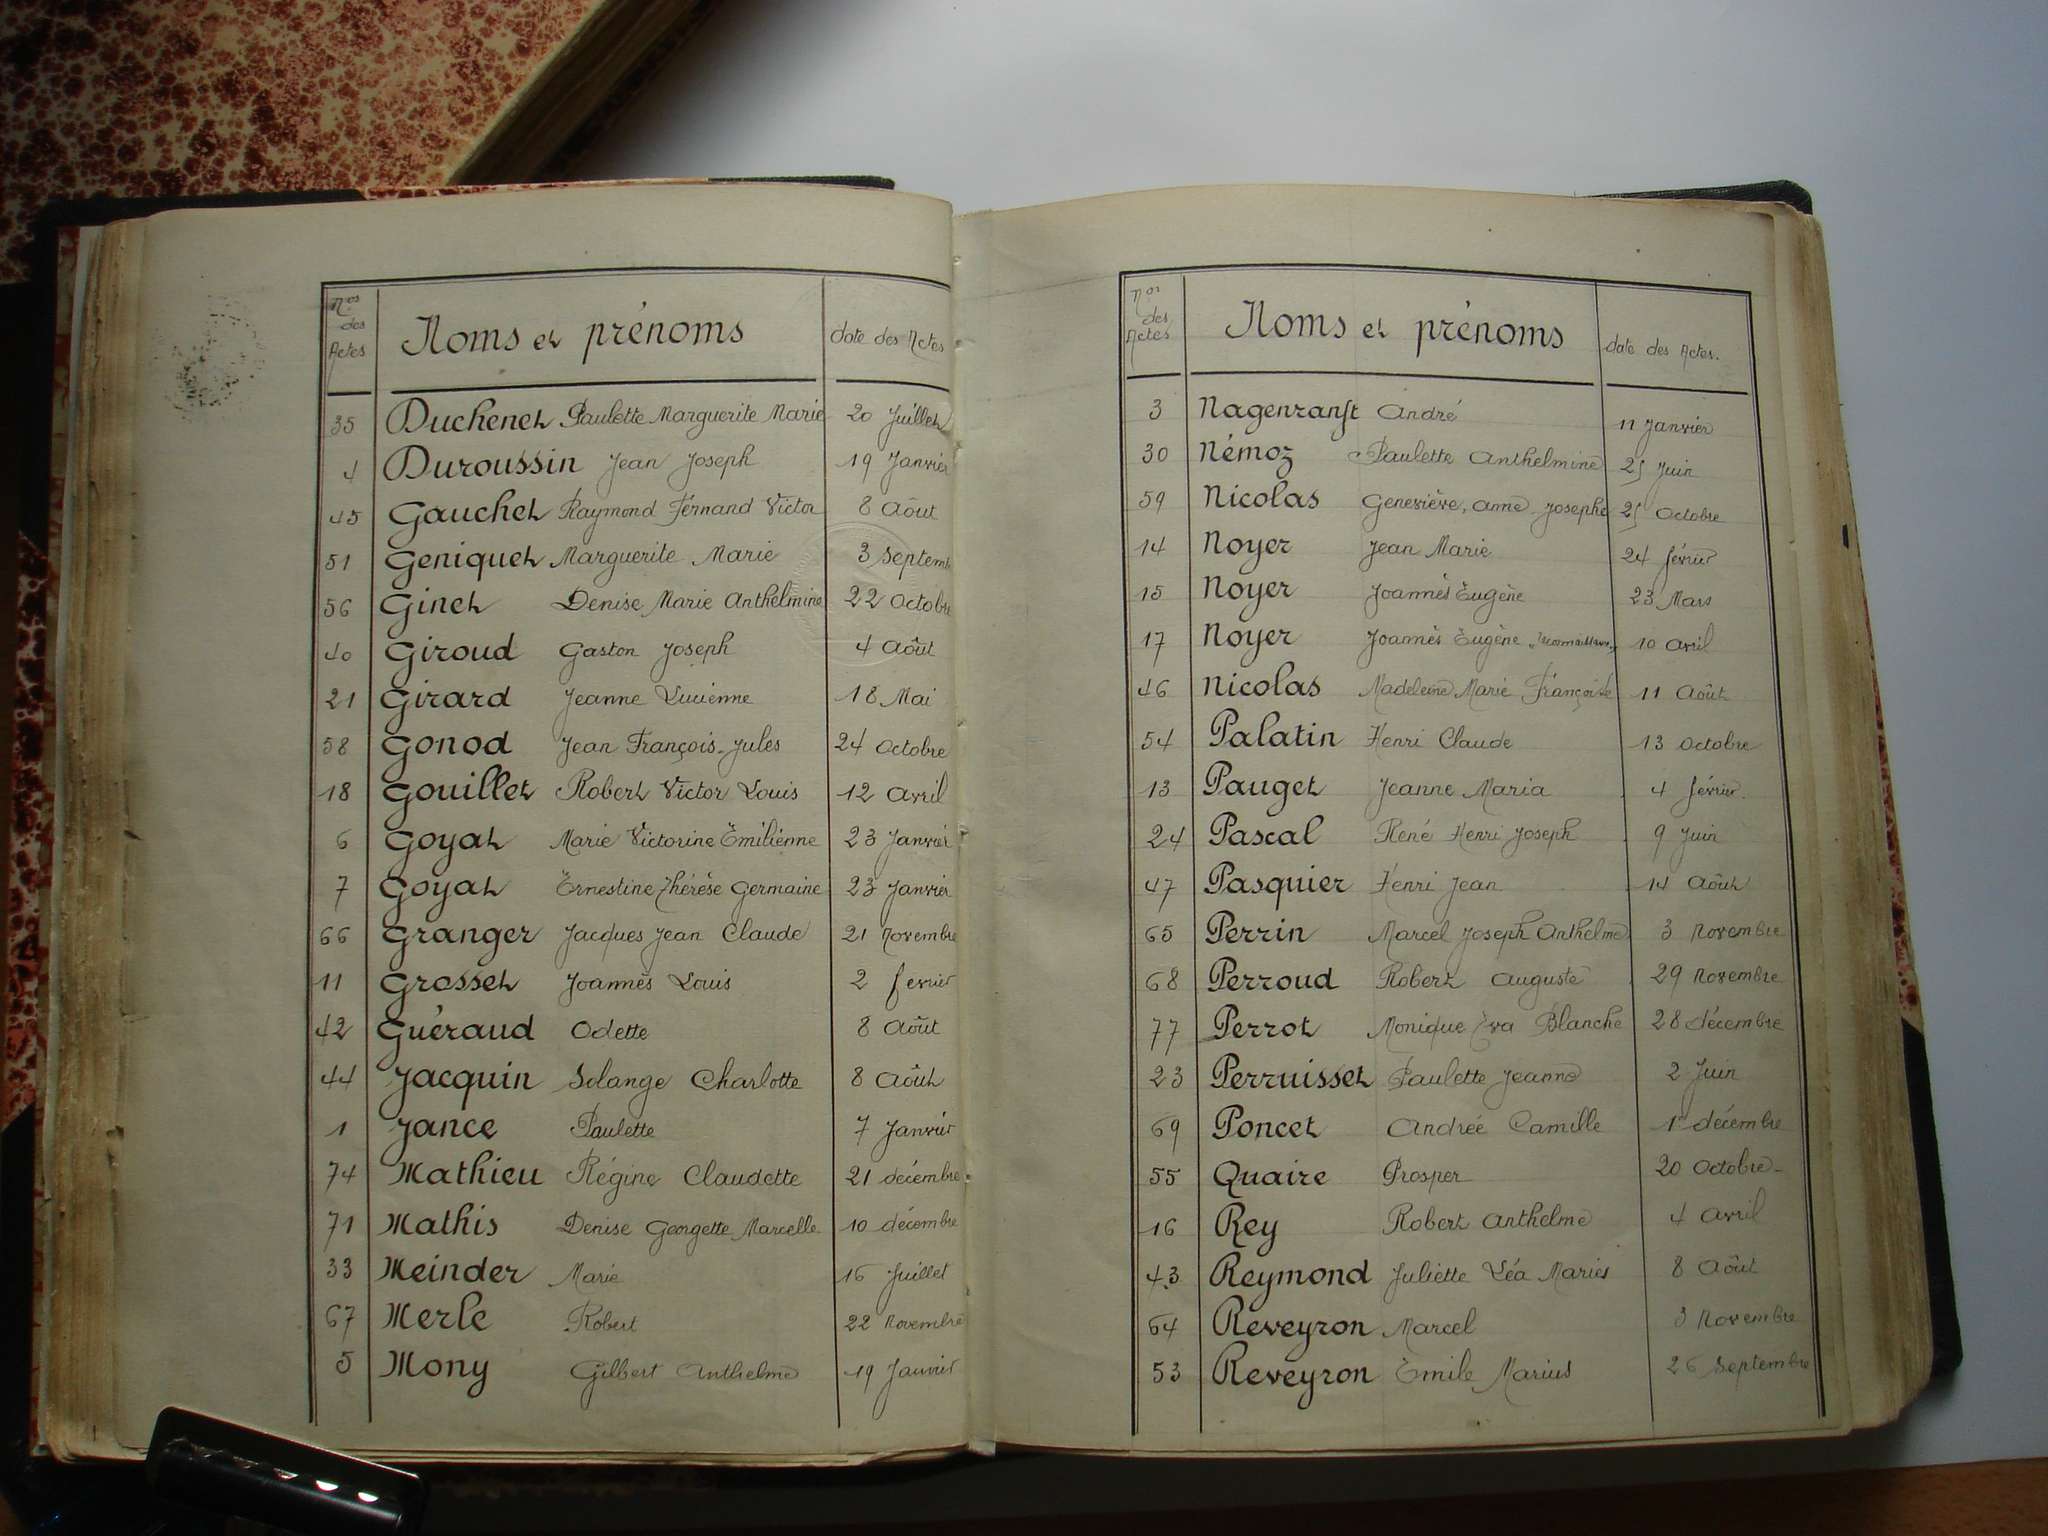 Nos des Actes Noms et prénoms date des Actes
35 Duchenet Paulette Marguerite Marie 20 Juillet
4 Duroussin Jean Joseph 19 Janvier
45 Gauchet Raymond Fernand Victor 8 Août
51 Geniquet Marguerite Marie 3 Septemb
56 Ginet Denise Marie Anthelmine 22 Octobre
40 Giroud Gaston Joseph 4 Août
21 Girard Jeanne Lucienne 18 Mai
58 Gonod Jean François Jules 24 Octobre
18 Gouillet Robert Victor Louis 12 Avril
6 Goyat Marie Victorine Emilienne 23 Janvier
7 Goyat Ernestine Thérèse Germaine 23 Janvier
66 Granger Jacques Jean Claude 21 Novembre
11 Grosset Joannès Louis 2 fevrier
42 Guéraud Odette 8 Août
44 Jacquin Solange Charlotte 8 Août
1 Jance Paulette 7 Janvier
74 Mathieu Régine Claudette 21 décembre
71 Mathis Denise Georgette Marcelle 10 décembre
33 Meinder Marie 16 Juillet
67 Merle Robert 22 Novembre
5 Mony Gilbert Anthelme 19 Janvier
Nos des Actes Noms et prénoms date des Actes.
3 Nagenranft André 11 Janvier
30 Némoz Paulette Anthelmine 25 Juin
59 Nicolas Geneviève, Anne Josephe 25 Octobre
14 Noyer Jean Marie 24 février
15 Noyer Joannès Eugène 23 Mars
17 Noyer Joannès Eugène 10 Avril
46 Nicolas Madeleine Marie Françoise 11 Août
54 Palatin Henri Claude 13 Octobre
13 Pauget Jeanne Maria 4 février.
24 Pascal René Henri Joseph 9 Juin
47 Pasquier Henri Jean 14 Août
65 Perrin Marcel Joseph Anthelme 3 Novembre
68 Perroud Robert Auguste 29 Novembre
77 Perrot Monique Eva Blanche 28 décembre
23 Perruisset Paulette Jeanne 2 Juin
69 Poncet Andrée Camille 1er décembre
55 Quaire Prosper 20 Octobre
16 Rey Robert Anthelme 4 Avril
43 Reymond Juliette Léa Maries 8 Août
64 Reveyron Marcel 3 Novembre
53 Reveyron Emile Marius 26 Septembre